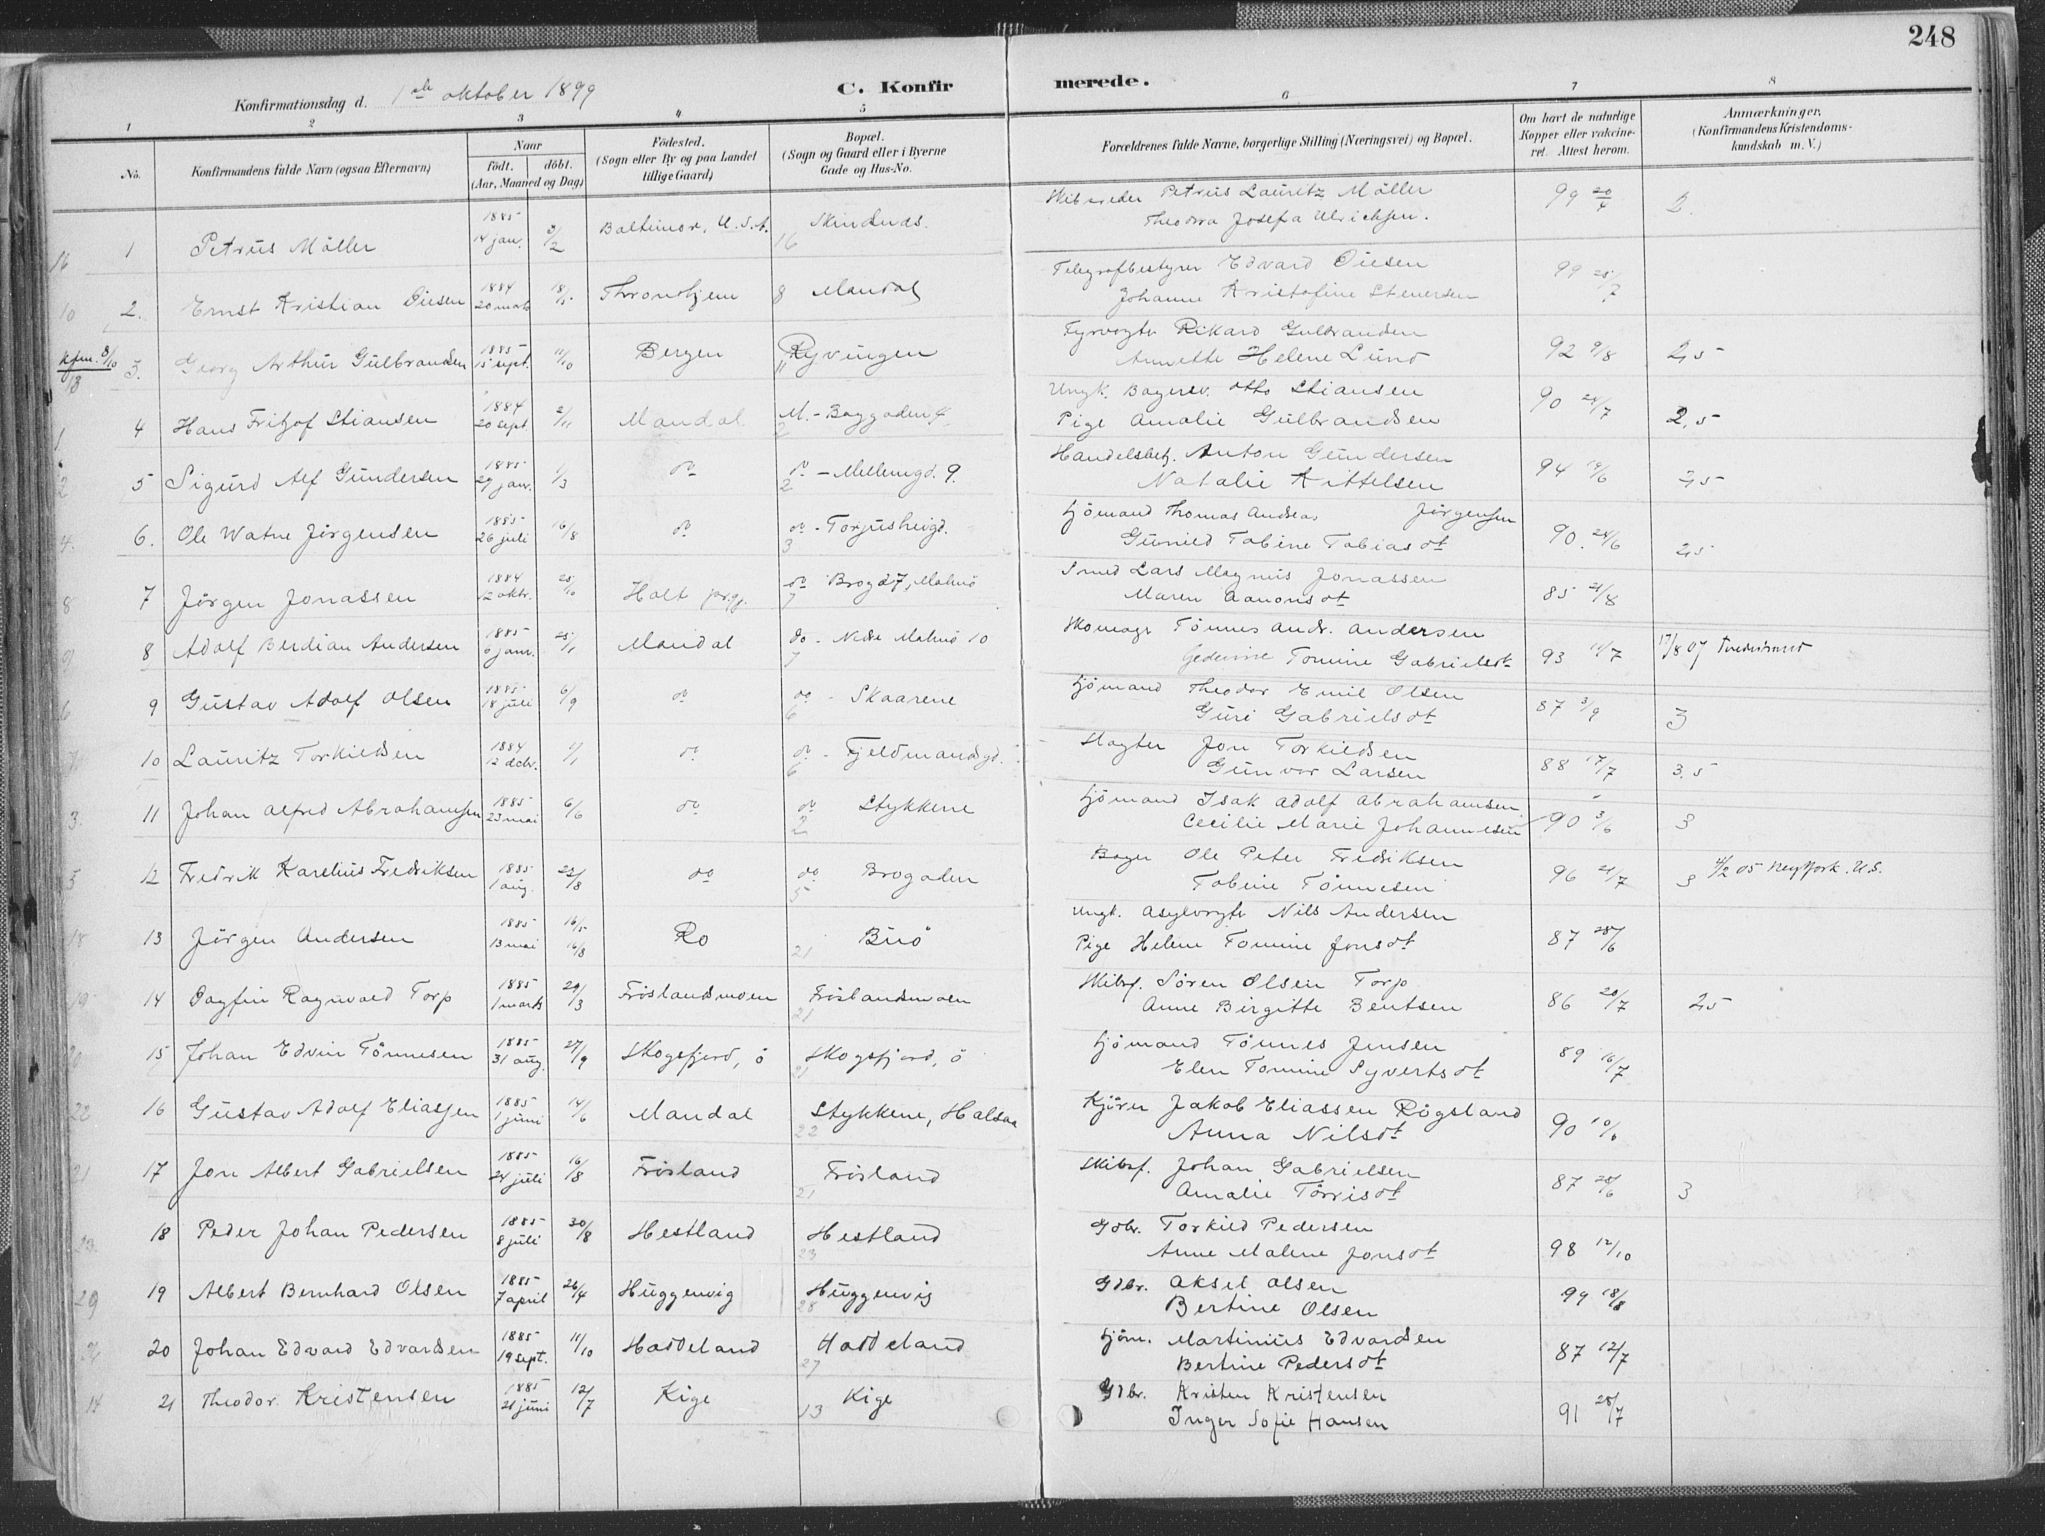 248
Konfirmationsdag d. 1ste oktober 1899 C. Konfir merede.
1 2 3 4 5 6 7 8
No. Konfirmandens fulde Navn (ogsaa Efternavn) Naar födt. döbt. (Aar, Maaned og Dag) Födested. (Sogn eller By og paa Landet tillige Gaard) Bopæl. (Sogn og Gaard eller i Byerne Gade og Hus-No. Forældrenes fulde Navne, borgerlige Stilling (Næringsvei) og Bopæl. Om havt de naturlige Kopper eller vakcineret. Attest herom. Anmærkninger. (Konfirmandens Kristendomskundskab m. V.)
16 1 Petrus Möller 1885 14 jan. 3/2 Baltimor, U.S.A. Skinsnes. 16 Skibsreder Petrus Lauritz Möller 99 20/4 2.
Theodora Josefa Ulrichsen.
10 2. Ernst Kristian Öiesen 1884 20 marts 18/5 Thronhjem 8 Mandal Telegrafbestyrer Edvard Öiesen 99 25/7
Johanne Kristofine Stenersen
kfm. 8/10 13 3. Georg Arthur Gulbrandsen 1885 15 sept. 11/10 Bergen Ryvingen 11 Fyrvogter Rikard Gulbrandsen 92 9/8 2,5
Annette Helene Lund
1 4 Hans Fritjof Stiansen 1884 20 sept 2/11 Mandal M. - Baggaden 4. 2 Ungk. Bagersv. Otto Stiansen 90 24/7 2,5
Pige Amalie Gulbrandsen
2 5 Sigurd Alf Gundersen 1885 29 jan. 1/3 do do - Mellemgd. 9. 2 Handelsbetj. Anton Gundersen 94 14/6 2,5
Natalie Kittelsen
4. 6. Ole Watne Jörgensen 1885 26 juli 16/8 do do - Torjusheigd. 3 Sjömand Thomas Andreas Jörgensen 90. 24/6 2,5
Gunild Tobine Tobiasdt
8 7 Jörgen Jonassen 1884 12 oktr. 25/10 Holt prgj. do - Brogd 7, Malmö 7 Smed Lars Magnus Jonassen 85 21/8
Maren Aanonsdt
9 8 Adolf Berdian Andersen 1885 6 janr. 25/1 Mandal do - Nedre Malmö 10 7 Skomagr Tönnes Andr. Andersen 93 14/7 17/8 07 Fredrikstad
Gedesine Tomine Gabrielsdt
6 9 Gustav Adolf Olsen 1885 18 juli 6/9 do do - Skaarene 6 Sjömand Theodor Emil Olsen 87 3/9 3
Guri Gabrielsdt
7 10 Lauritz Torkildsen 1884 12 dcbr. 1/1 do do - Fjeldmandsgd. 6 Slagter Jon Torkildsen 88 17/7 3,5
Gunvor Larsen
3. 11 Johan Alfred Abrahamsen 1885 23 mai 6/6 do do Stykkene 2 Sjömand Isak Adolf Abrahamsen 90 3/6 3
Cecilie Marie Johannesen
5 12 Fredrik Karelius Fredriksen 1885 1 aug. 22/8 do do Brogaden 5 Bager Ole Peter Fredriksen 96 21/7 3 4/2 05 New York. U.S.
Tobine Tönnesen
18 13 Jörgen Andersen 1885 13 mai 16/5 16/8 Ro Buö 21 Ungk. Asylvogter Nils Andersen 87 28/6
Pige Helene Tomine Jonsdt
19 14 Dagfin Ragnvald Torp 1885 1 marts 29/3 Fröslandsmoen Fröslandsmoen 21 Skibsf. Sören Olsen Torp 86 20/7 2,5
Anne Birgitte Bentsen
20 15 Johan Edvin Tönnesen 1885 31 aug. 27/9 Skogsfjord, ö Skogsfjord, ö 21 Sjömand Tönnes Jensen 89 16/7
Elen Tomine Syvertsdt
22 16 Gustav Adolf Eliassen 1885 1 juni 14/6 Mandal Stykkene, Halsaa 22 Kjörer Jakob Eliassen Rögsland 90 10/6
Anna Nilsdt
21 17 Jon Albert Gabrielsen 1885 24 juli 16/8 Frösland Frösland 21 Skibsf. Johan Gabrielsen 87 28/6 3
Amalie Törrisdt
23. 18 Peder Johan Pedersen 1885 8 juli 30/8 Hestland Hestland 23 Gdbr. Torkild Pedersen 98 12/10
Anne Malene Jonsdt
29 19 Albert Bernhard Olsen 1885 7 april 26/4 Huggenvig Huggenvig 28 Gdbr. Aksel Olsen 99 18/8
Bertine Olsen
20 Johan Edvard Edvardsen 1885 19 sept. 11/10 Haddeland Haddeland 27 Sjöm. Martinius Edvardsen 87 12/7
Bertine Pedersdt
14 21 Theodor Kristensen 1885 21 juni 12/7 Kige Kige 13 Gdbr. Kristen Kristensen 91 28/7
Inger Sofie Hansen